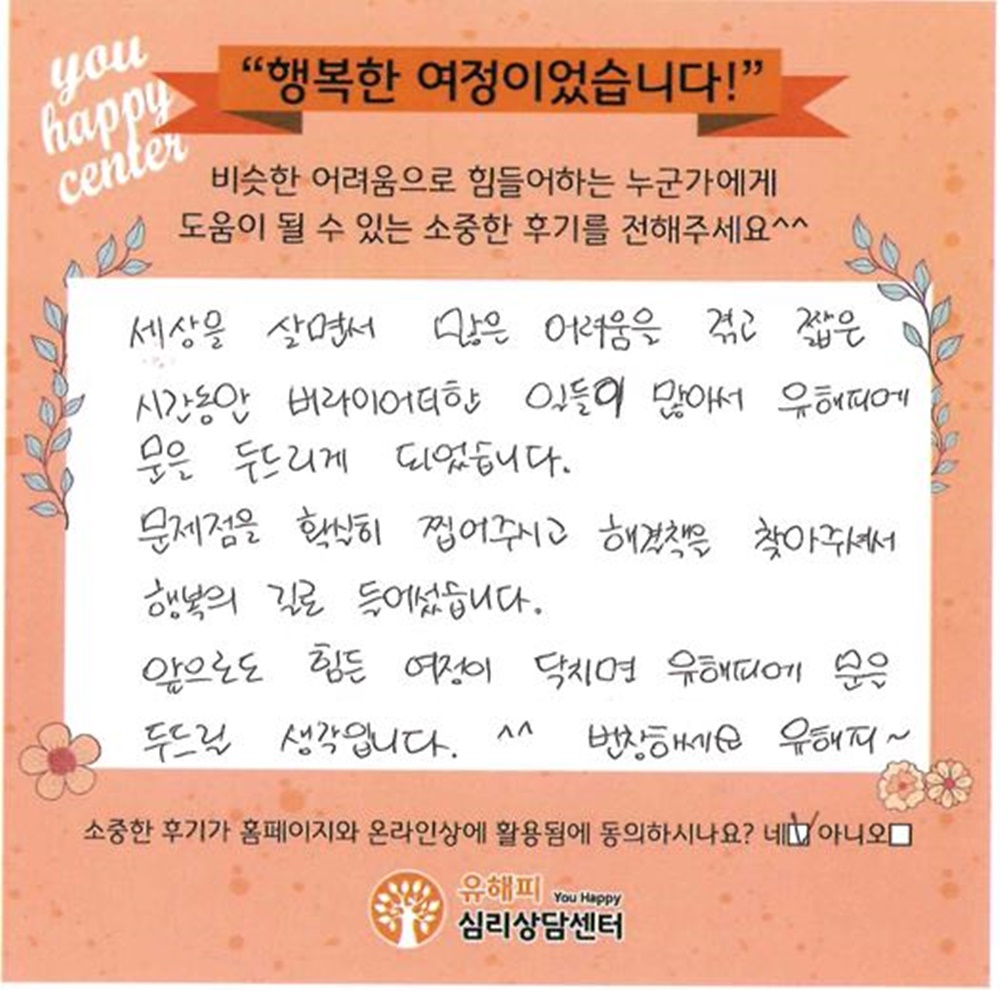 you
happy
center
“행복한 여정이었습니다!”
비슷한 어려움으로 힘들어하는 누군가에게
도움이 될 수 있는 소중한 후기를 전해주세요^^
세상을 살면서 많은 어려움을 겪고 짧은
시간동안 버라이어티한 일들이 많아서 유해피에
문을 두드리게 되었습니다.
문제점을 확실히 찝어주시고 해결책을 찾아주셔서
행복의 길로 들어섰습니다.
앞으로도 힘든 여정이 닥치면 유해피에 문은
두드릴 생각입니다. ^^ 번창하세요 유해피~
소중한 후기가 홈페이지와 온라인상에 활용됨에 동의하시나요? 네☑ 아니오☐
유해피 You Happy
심리상담센터